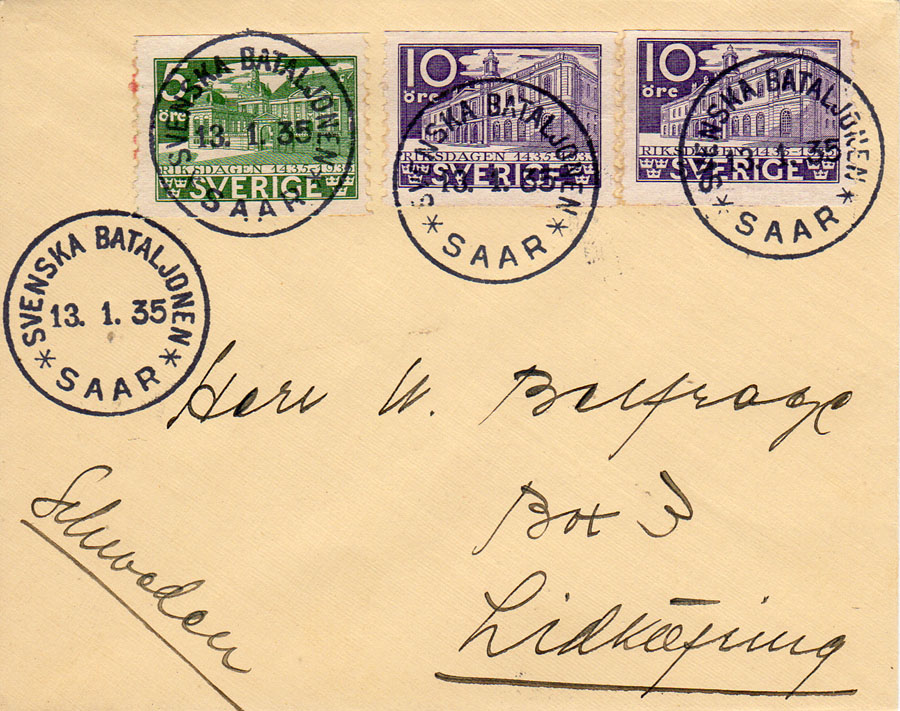 5
öre
RIKSDAGEN 1435-1935
SVERIGE
10
öre
RIKSDAGEN 1435-1935
SVERIGE
10
öre
RIKSDAGEN 1435-1935
SVERIGE
SVENSKA BATALJONEN
13. 1. 35
* SAAR *
SVENSKA BATALJONEN
13. 1. 35
* SAAR *
SVENSKA BATALJONEN
13. 1. 35
* SAAR *
SVENSKA BATALJONEN
13. 1. 35
* SAAR *
Herr W. Belfrage
Box 3
Lidköping
Schweden